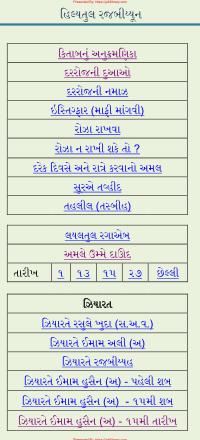 Presented by: https://jafrilibrary.com
હિલ્યતુલ રજબીય્યૂન
કિતાબનું અનુક્રમણિકા
દરરોજની દુઆઓ
દરરોજની નમાઝ
ઇસ્તિગ્ફાર (માફી માંગવી)
રોઝા રાખવા
રોઝા ન રાખી શકે તો ?
દરેક દિવસે અને રાત્રે કરવાનો અમલ
સુરએ તવ્હીદ
તહલીલ (તસ્બીહ)
લયલતુલ રગાએબ
અમલે ઉમ્મે દાઊદ
તારીખ ૧ ૧૩ ૧૫ ૨૭ છેલ્લી
ઝિયારત
ઝિયારતે રસુલે ખુદા (સ.અ.વ.)
ઝિયારતે ઈમામ અલી (અ)
ઝિયારતે રજબિય્યહ
ઝિયારતે ઈમામ હુસૈન (અ) - પહેલી શબ
ઝિયારતે ઈમામ હુસૈન (અ) - ૧૫મી શબ
ઝિયારતે ઈમામ હુસૈન (અ) - ૧૫મી તારીખ